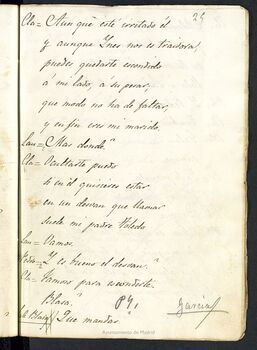 24
Cla= Aunque esté irritado él
y aunque Ines nos es traidora,
puedes quedarte escondido
á mi lado, á su pesar,
que modo no ha de faltar,
y en fin eres mi marido.
Lau= Mas donde?
Cla= Ocultarte puedo
si en él quisieres estar
en un desvan que llamar
suele mi padre Toledo
Lau= Vamos.
Y es bueno el desvan?
Cla= Vamos para esconderte.
Blasa.
Que mandas?
García
Ayuntamiento de Madrid